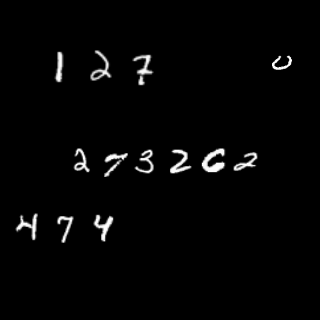 1 2 7 0
2 7 3 2 6 2
4 7 4